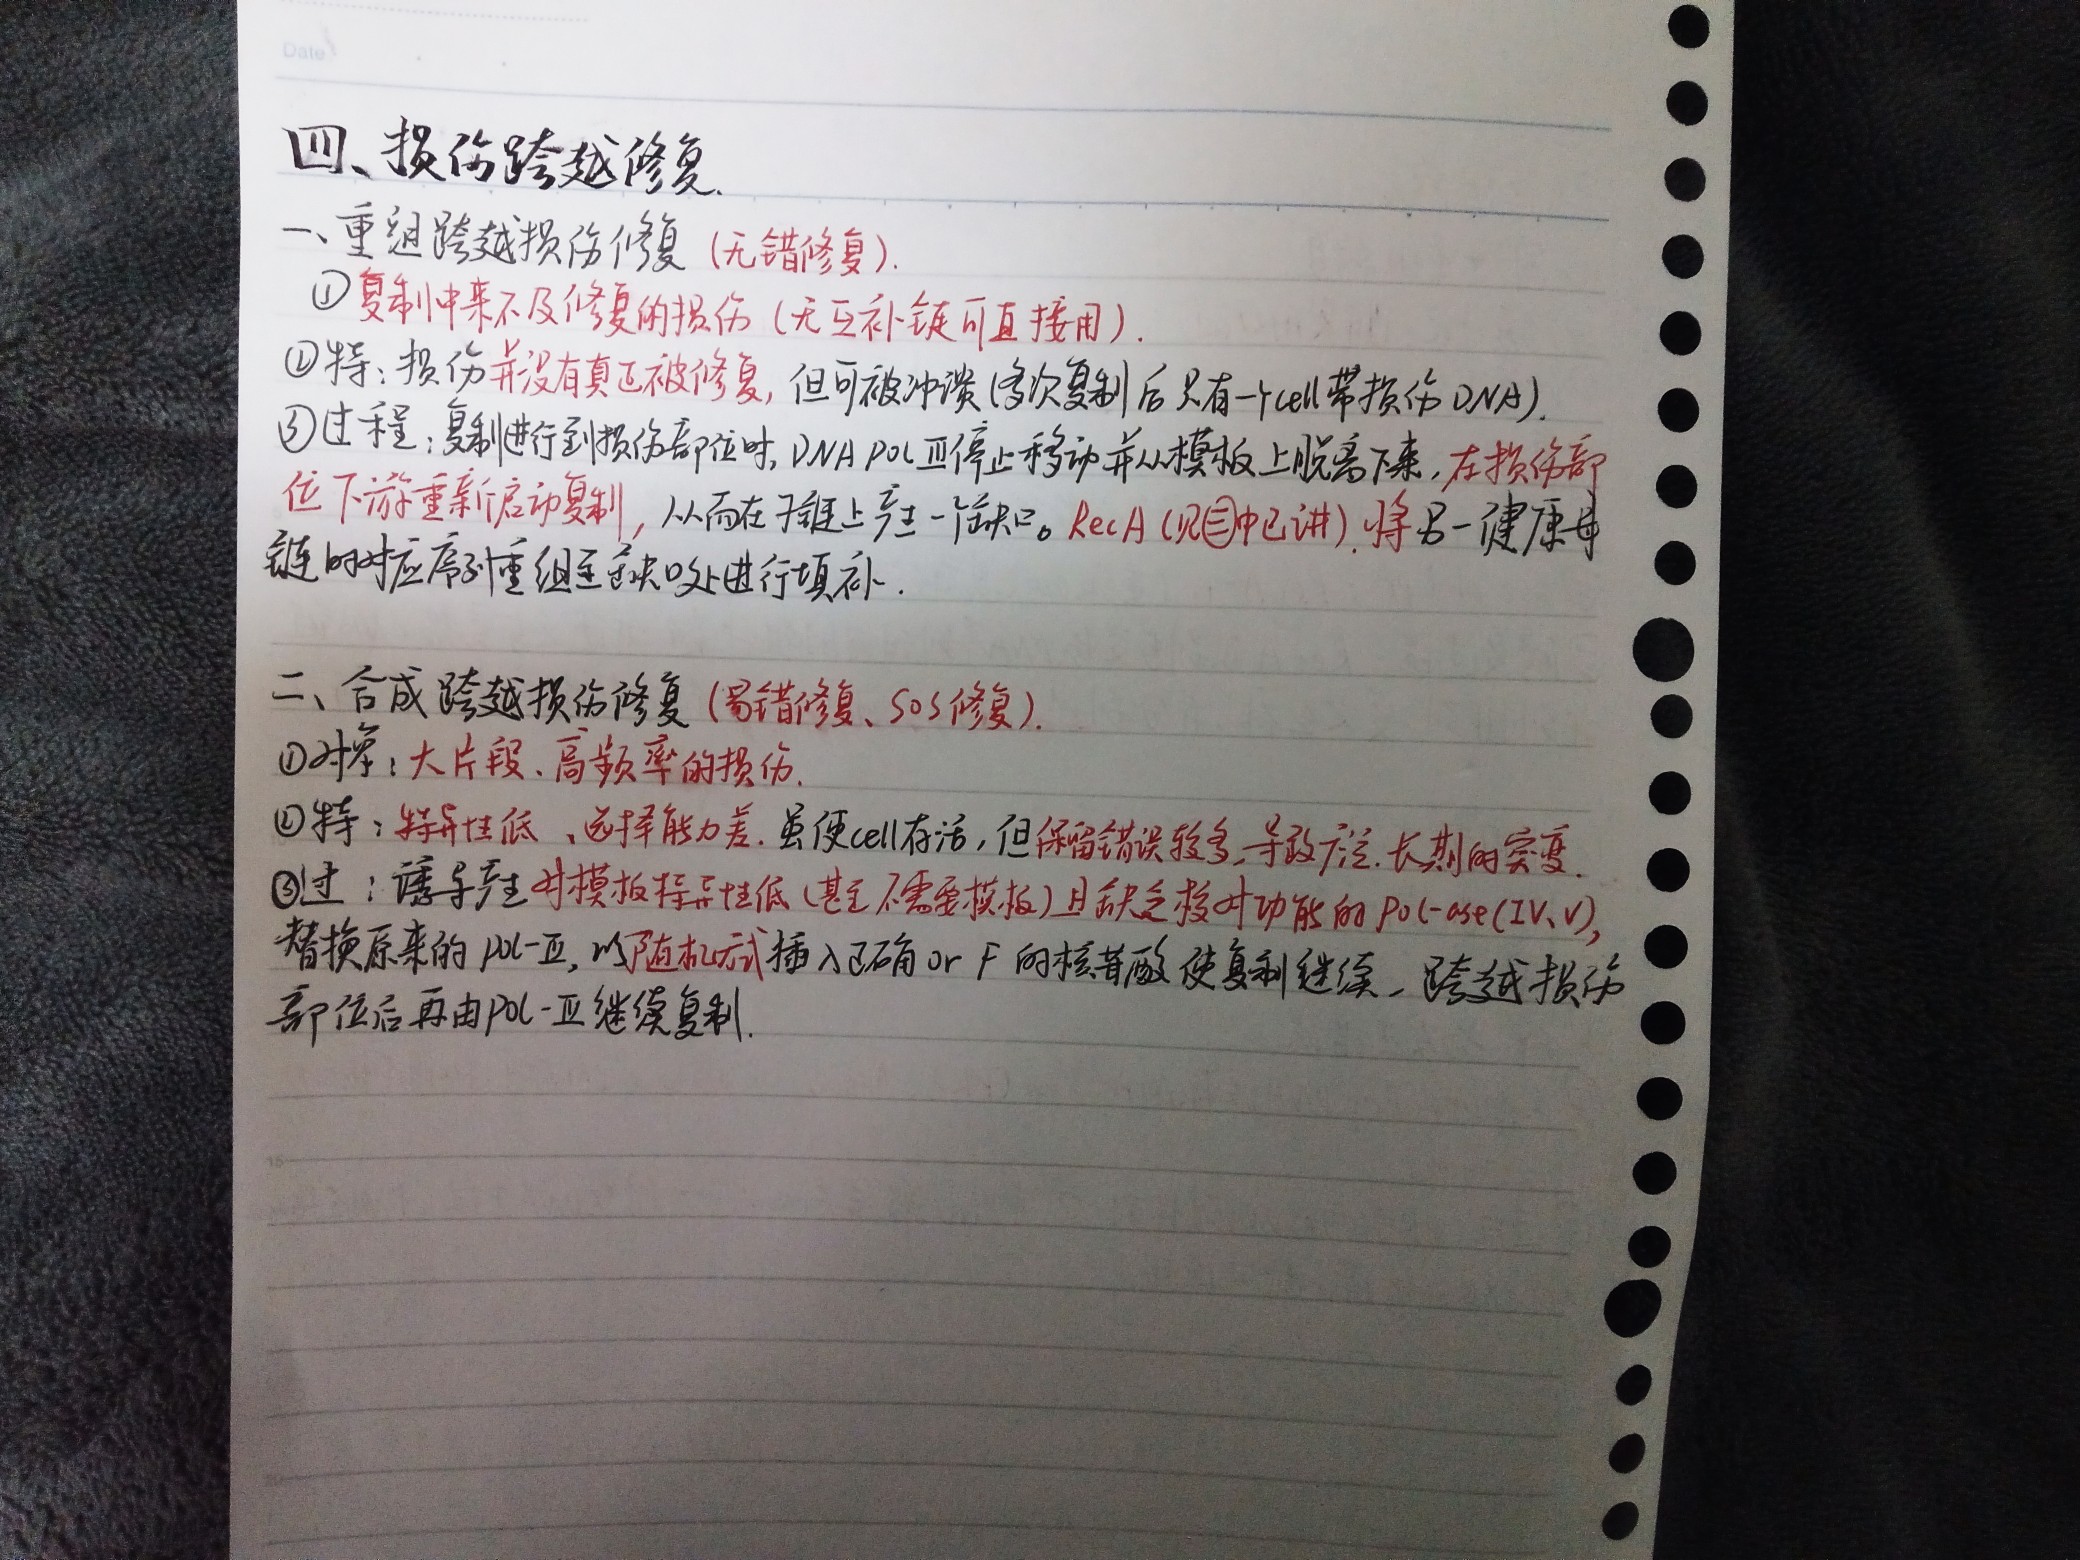 Date
四、损伤跨越修复.
一、重组跨越损伤修复(无错修复).
①复制中来不及修复的损伤(无互补链可直接用).
②特:损伤并没有真正被修复,但可被冲淡(多次复制后只有一个cell带损伤DNA).
③过程:复制进行到损伤部位时,DNA POL III停止移动并从模板上脱离下来,在损伤部
位下游重新启动复制,从而在子链上产生一个缺口。RecA(见㊂中已讲).将另一健康母
链的对应序列重组至缺口处进行填补.
二、合成跨越损伤修复(易错修复、SOS修复).
①对象:大片段、高频率的损伤.
②特:特异性低、选择能力差.虽使cell存活,但保留错误较多,导致广泛.长期的突变.
③过:诱导产生对模板特异性低(甚至不需要模板)且缺乏核对功能的Pol-ase(IV、V),
替换原来的POL-III,以随机方式插入正确or F的核苷酸使复制继续,跨越损伤
部位后再由POL-III继续复制.
15